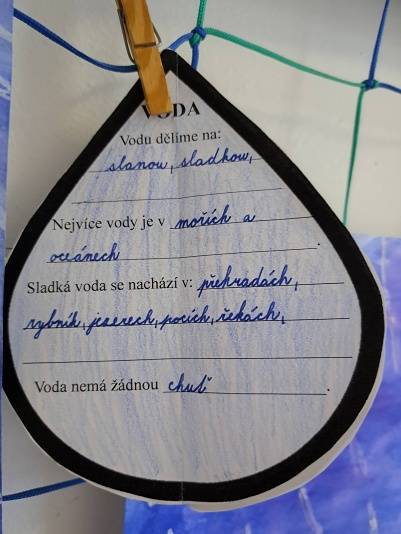 VODA
Vodu dělíme na:
slanou, sladkou,
Nejvíce vody je v mořích a
oceánech.
Sladká voda se nachází v: přehradách,
rybník, jezerech, pocích, řekách,
Voda nemá žádnou chuť.